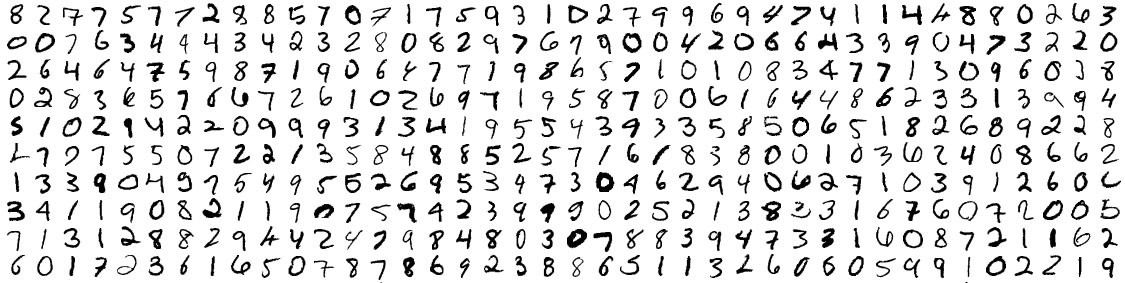 8 2 7 7 5 7 7 2 8 8 5 7 0 7 1 7 5 9 3 1 0 2 7 9 9 6 9 4 7 4 1 1 4 4 8 8 0 2 6 3
0 0 7 6 3 4 9 4 3 4 2 3 2 8 0 8 2 9 7 6 7 9 0 0 4 2 0 6 6 4 3 3 9 0 4 7 3 2 2 0
2 6 4 6 4 7 5 9 8 7 1 9 0 6 4 7 7 1 9 8 6 5 7 1 0 1 0 8 3 4 7 7 1 3 0 9 6 0 3 8
0 2 8 3 6 5 7 6 6 7 2 6 1 0 2 6 9 7 1 9 5 8 7 0 0 6 1 6 4 4 8 6 2 3 3 1 3 9 9 4
5 1 0 2 9 4 2 2 0 9 9 9 3 1 3 4 1 9 5 5 4 3 9 3 3 5 8 5 0 6 5 1 8 2 6 8 9 2 2 8
1 7 7 5 5 0 7 2 2 1 3 5 8 4 8 8 5 2 5 7 1 6 1 8 3 8 0 0 1 0 3 6 2 4 0 8 6 6 2
1 3 3 9 0 4 9 7 5 4 9 5 5 2 6 9 5 3 4 7 3 0 4 6 2 9 4 0 6 2 7 1 0 3 9 1 2 6 0 6
3 4 1 1 9 0 8 2 1 1 9 0 7 5 7 4 2 3 9 9 0 0 2 5 2 1 3 8 3 3 1 6 7 6 0 7 2 0 0 5
7 1 3 1 2 8 8 2 9 4 4 2 4 7 9 8 4 8 0 3 0 7 8 8 3 9 4 7 3 3 1 6 0 8 7 2 1 1 6 2
6 0 1 7 2 3 6 1 6 5 0 7 8 7 8 6 9 2 3 8 8 6 5 1 1 3 2 6 0 6 0 5 9 9 1 0 2 2 1 9